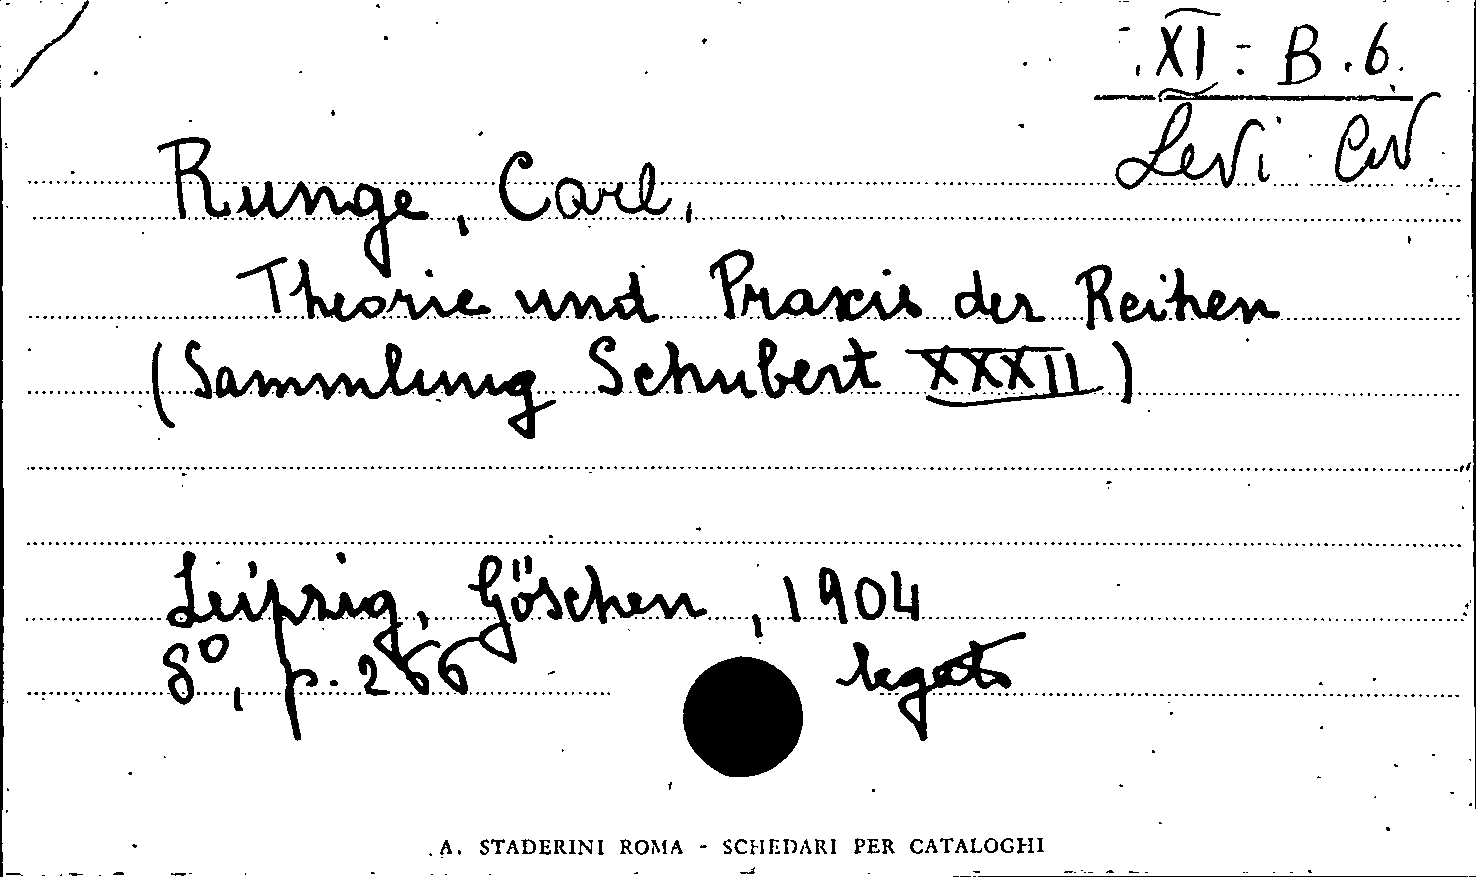 XI - B.6.
Levi Civ
Runge, Carl,
Theorie und Praxis der Reihen
(Sammlung Schubert XXXII)
Leipzig, Göschen, 1904
8°, p. 266 legato
A. STADERINI ROMA - SCHEDARI PER CATALOGHI